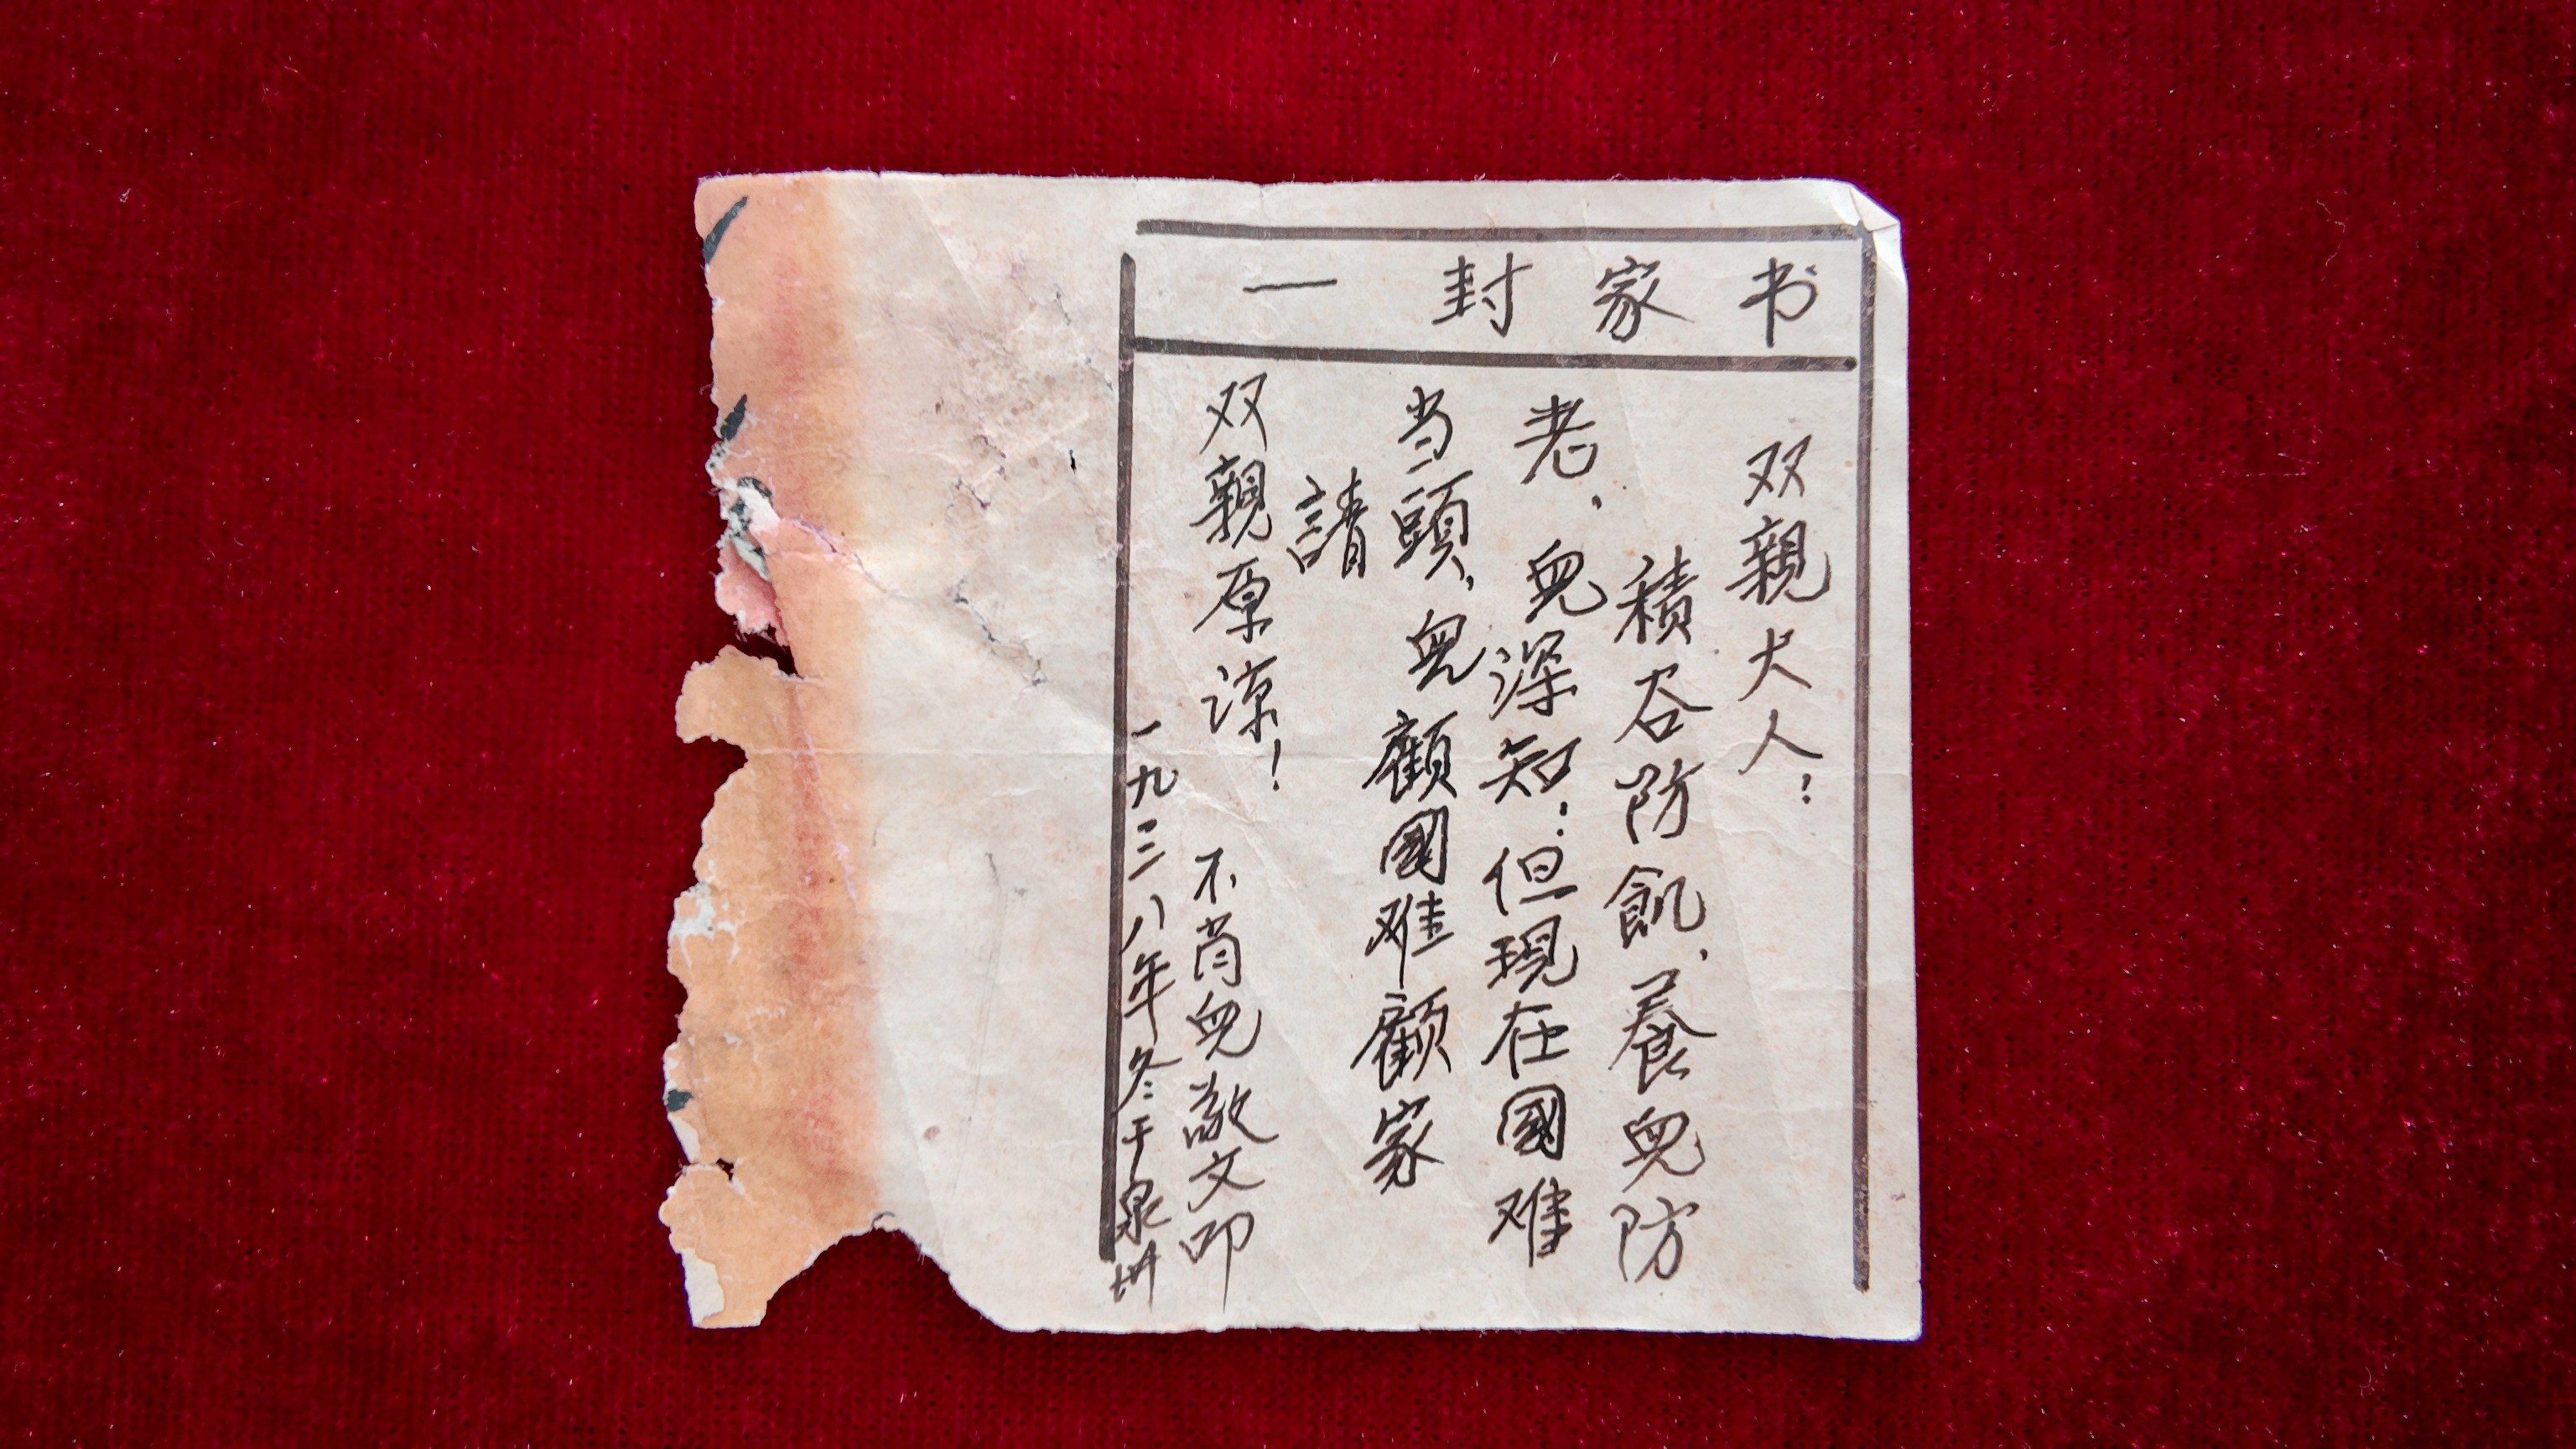 一封家书
双親大人：
積谷防飢、養兒防
老、兒深知；但現在國难
当頭、兒顧國难顧家
請
双親原谅！
不肖兒敬文叩
一九三八年冬于泉州